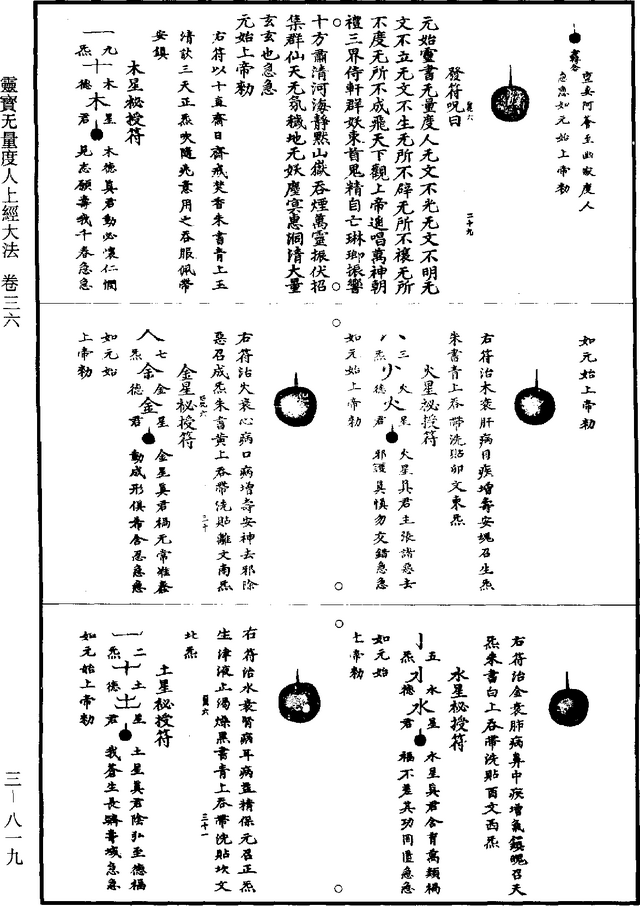 靈寶无量度人上經大法　卷三六
三—八一九
急急如元始上帝勅
發符呪曰
二十九
元始靈書无量度人无文不光无文不明无
文不立无文不生无所不辟无所不禳无所
不度无所不成飛天下觀上帝遙唱萬神朝
禮三界侍軒群妖束首鬼精自亡琳瑯振響
十方肅清河海靜默山嶽吞煙萬靈振伏招
集群仙天无氛穢地无妖塵冥慧洞清大量
玄玄也急急
元始上帝勅
右符以十直齋日齋戒焚香朱書青上玉
清訣三天正炁吹隨兆意用之吞服佩帶
安鎮
木星祕授符
一九木星
十木
炁德君
木德真君動必懷仁憫
見志願壽我千春急急
如元始上帝勅
右符治木衰肝病目疾增壽安魂召生炁
朱書青上吞帶洗貼卯文東炁
火星祕授符
三火星
火
炁德君
火星真君主張諸惡去
邪護真慎勿交錯急急
如元始
上帝勅
右符治火衰心病口病增壽安神去邪除
惡召成炁朱書黃上吞帶洗貼離文南炁
三十
金星祕授符
七金星
金
炁德君
金星真君禍无常准養
動成形俱希含忍急急
如元始
上帝勅
右符治金衰肺病鼻中疾增氣鎮魄召天
炁朱書白上吞帶洗貼酉文西炁
水星祕授符
五水星
水
炁德君
水星真君含育萬類禍
福不差其功罔匱急急
如元始
上帝勅
右符治水衰腎病耳病益精保元召正炁
生津液止渴燥黑書青上吞帶洗貼坎文
北炁
三十一
土星祕授符
一二土星
十土
炁德君
土星真君陰弘至德福
我蒼生長躋壽域急急
如元始上帝勅